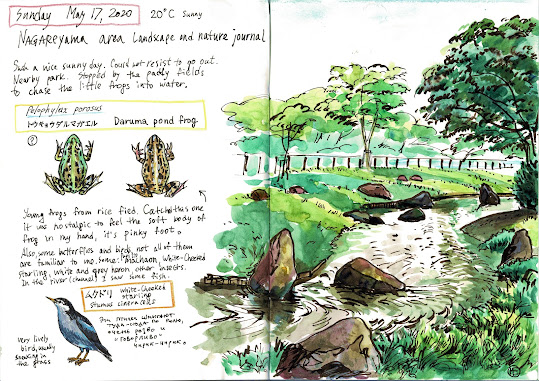 Sunday May 17, 2020 20°C Sunny
NAGAREYAMA area Landscape and nature journal
Such a nice sunny day. Could not resist to go out.
Nearby park. Stopped by the paddy fields
to chase the little frogs into water.
Pelophylax porosus
トウキョウダルマガエル Daruma pond frog
Young frogs from rice fied. Catched this one
it was nostalpic to feel the soft body of
frog in my hand, it's pinky foot.
Also, some butterflies and birds, not all of them
are familiar to me. Some: White-Cheeked
starling, white and grey heron other insects.
In the "river (channel) I saw some fish.
ムクドリ White-Cheeked
starling
Sturnus cineraceus
Эти птички шныряют
туда-сюда по полю,
и
"говорливо"
чирик-чирик.
very lively
bird, usually
sneaking in
the grass